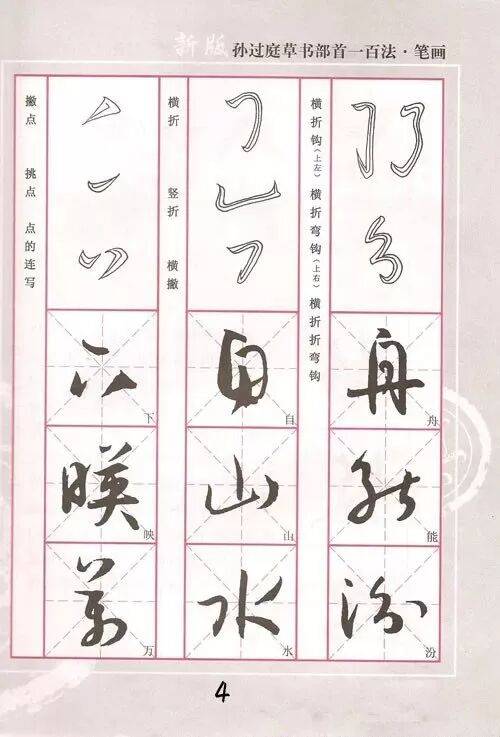 新版 孙过庭草书部首一百法·笔画
撇点 挑点 点的连写
横折 竖折 横撇
横折钩(上左) 横折弯钩(上右) 横折折弯钩
下 下
自 自
舟 舟
映 映
山 山
能 能
万 万
水 水
汾 汾
4